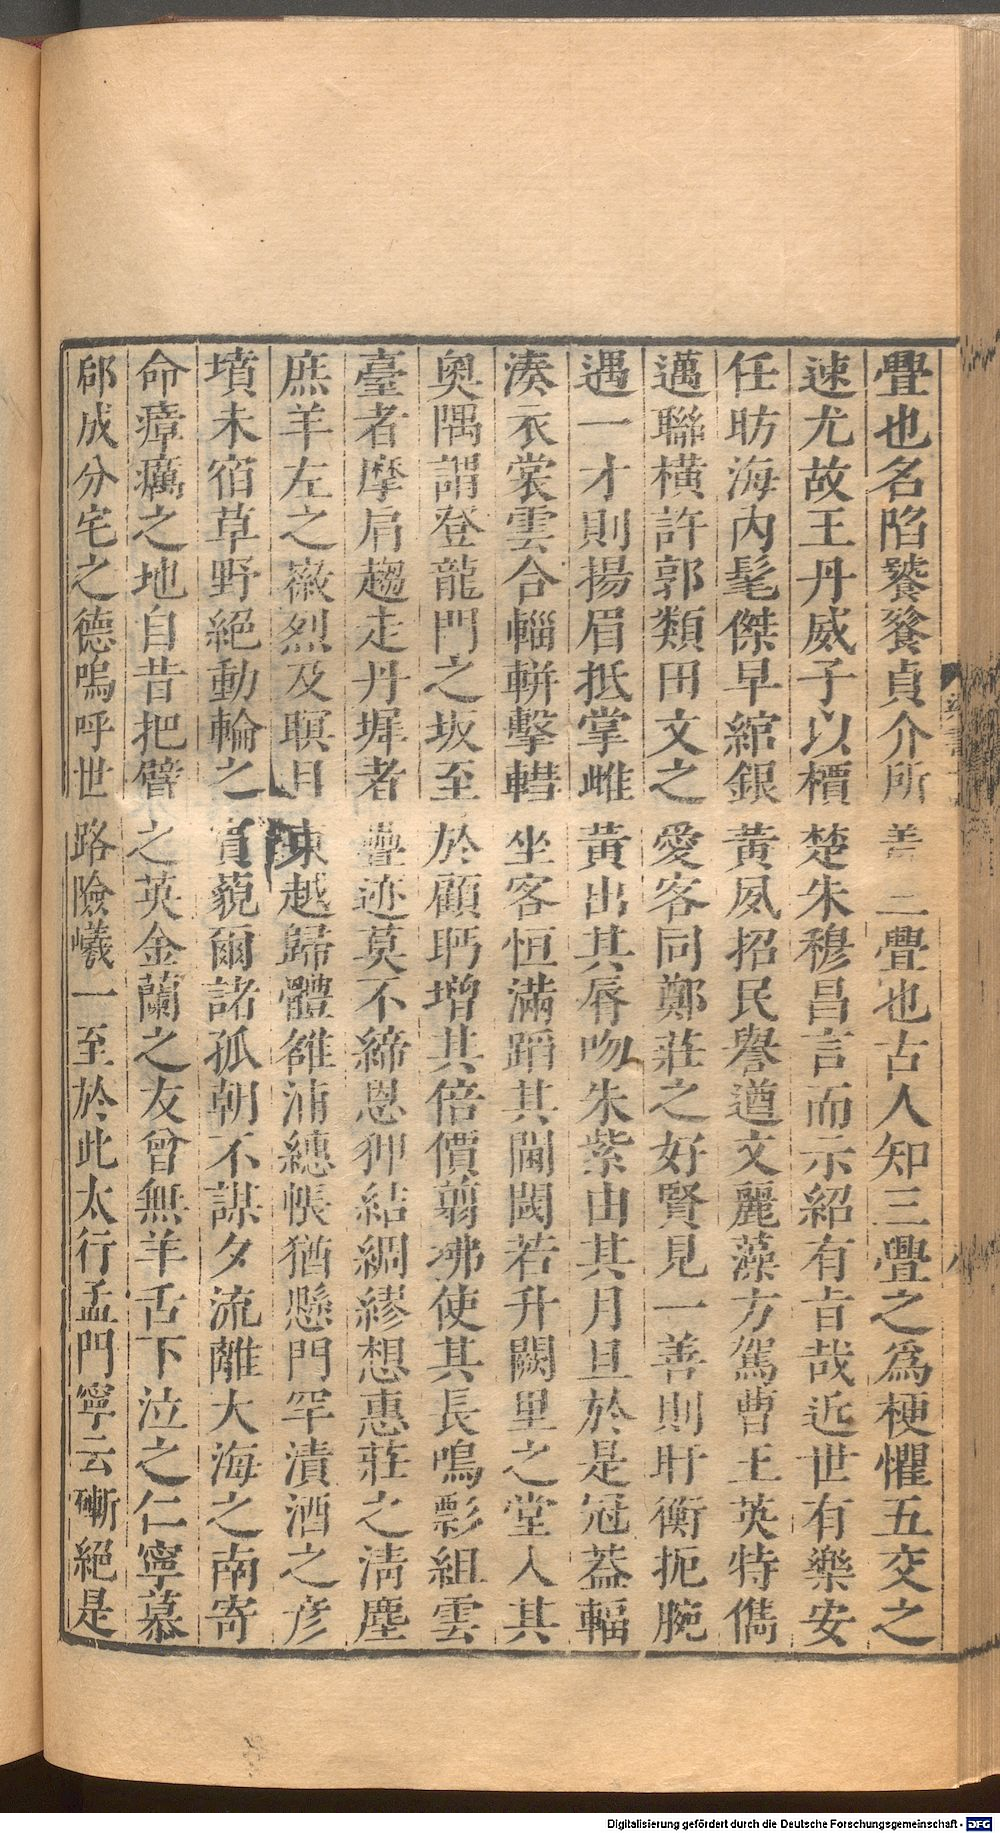 亹也名陷饕餮貞介所羞三亹也古人知三亹之爲梗懼五交之
速尤故王丹威子以檟楚朱穆昌言而示紹有旨哉近世有樂安
任昉海內髦傑早綰銀黃夙招民譽遒文麗藻方駕曹王英特儁
邁聯橫許郭類田文之愛客同鄭莊之好賢見一善則盱衡扼腕
遇一才則揚眉抵掌雌黃出其脣吻朱紫由其月旦於是冠葢輻
湊衣裳雲合輜軿擊轊坐客恒滿蹈其閫閾若升闕里之堂入其
奥隅謂登龍門之坂至於顧眄增其倍價翦拂使其長鳴彯組雲
臺者摩肩趨走丹墀者疊迹莫不締恩狎結綢繆想惠莊之清塵
庶羊左之徽烈及瞑目東越歸體雒浦繐帳猶懸門罕漬酒之彥
墳未宿草野絕動輪之賓藐爾諸孤朝不謀夕流離大海之南寄
命瘴癘之地自昔把臂之英金蘭之友曾無羊舌下泣之仁寧慕
郈成分宅之德嗚呼世路險巇一至於此太行孟門寧云嶄絕是
Digitalisierung gefördert durch die Deutsche Forschungsgemeinschaft - DFG